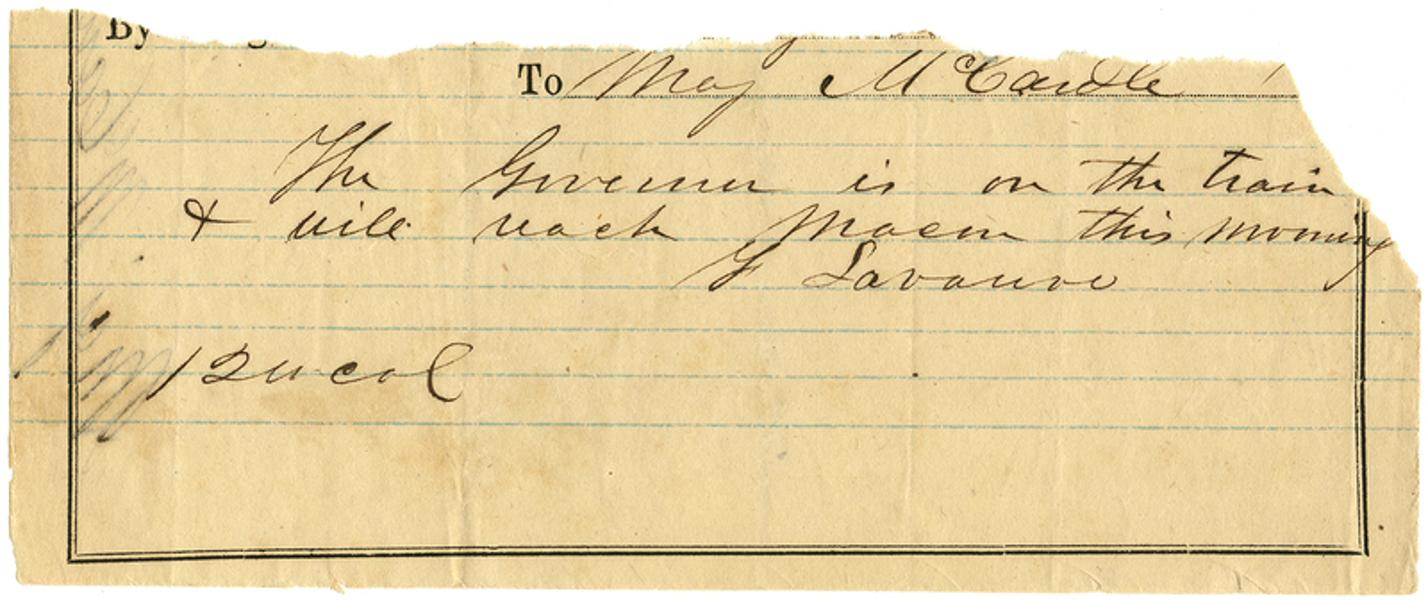 By
To Maj McCardle
The Governer is on the train
& will reach Macon this morning
F Lavauve
12 u col